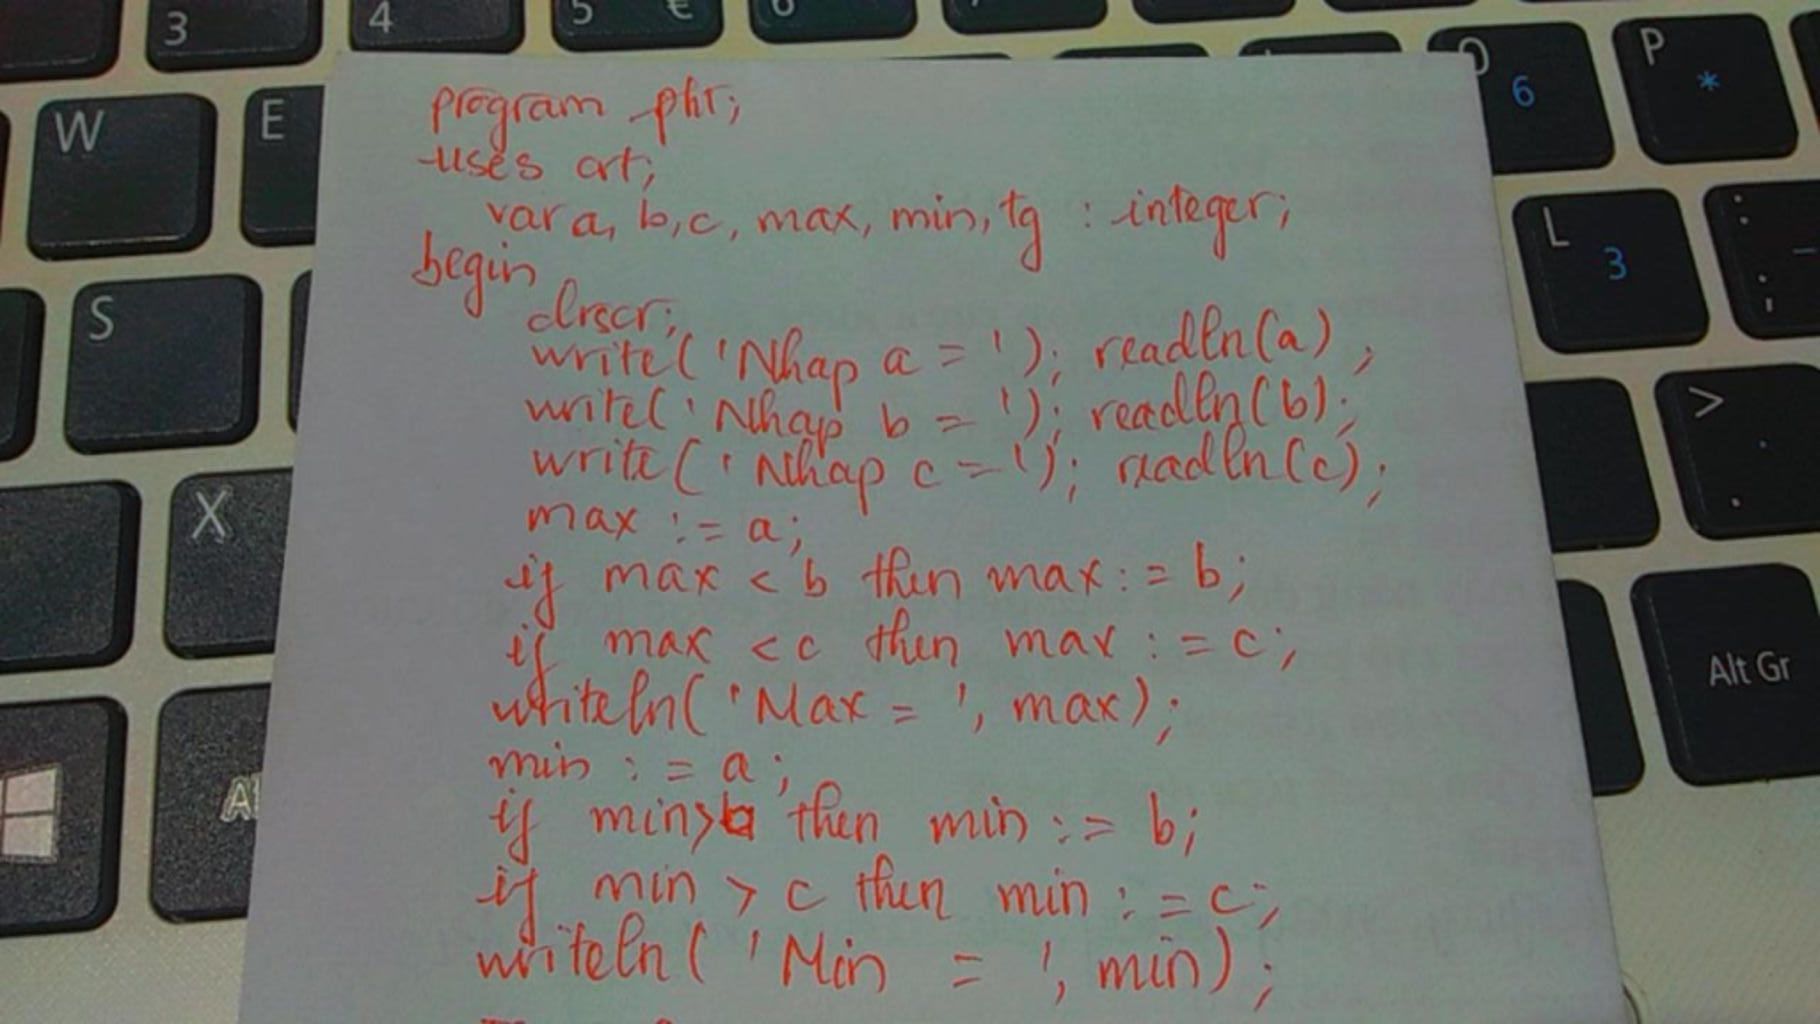 3 4 5 € 6
W E O 6 P *
program pht;
uses crt;
var a, b, c, max, min, tg : integer;
begin
clrscr;
write('Nhap a = '); readln(a);
write('Nhap b = '); readln(b);
write('Nhap c = '); readln(c);
max := a;
if max < b then max := b;
if max < c then max := c;
writeln('Max = ', max);
min := a;
if min > b then min := b;
if min > c then min := c;
writeln('Min = ', min);
S L 3 : ; -
X > .
Alt Gr